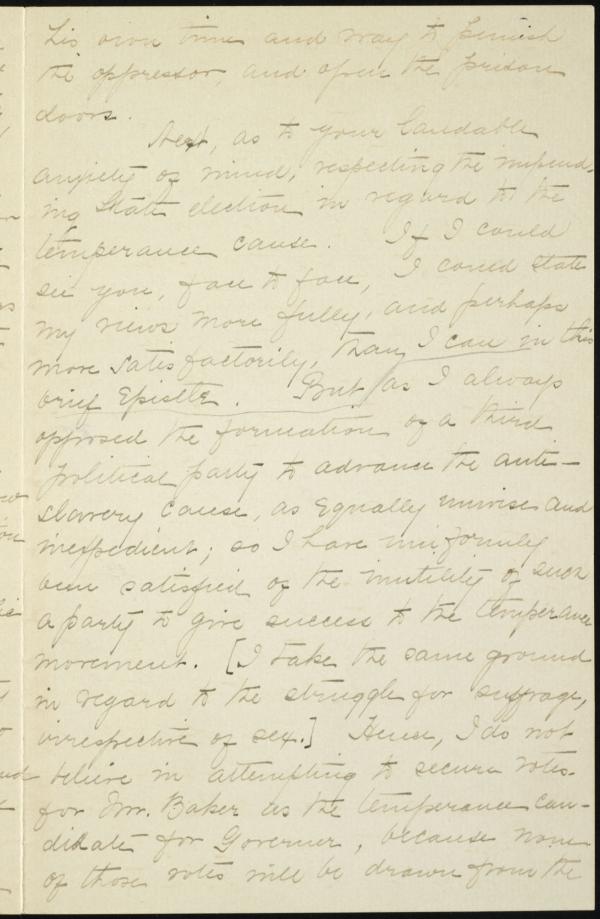 his own time and way to punish
the oppressor, and open the prison
doors.
Next, as to your laudable
anxiety of mind, respecting the impend-
ing State election in regard to the
temperance cause. If I could
see you, face to face, I could state
my views more fully, and perhaps
more satisfactorily, than I can in this
brief Epistle. But, as I always
opposed the formation of a third
political party to advance the anti-
slavery cause, as equally unwise and
inexpedient; so I have uniformly
been satisfied of the inutility of such
a party to give success to the temperance
movement. [I take the same ground
in regard to the struggle for suffrage,
irrespective of sex.] Hence, I do not
believe in attempting to secure votes
for Mr. Baker as the temperance can-
didate for Governer, because none
of those votes will be drawn from the